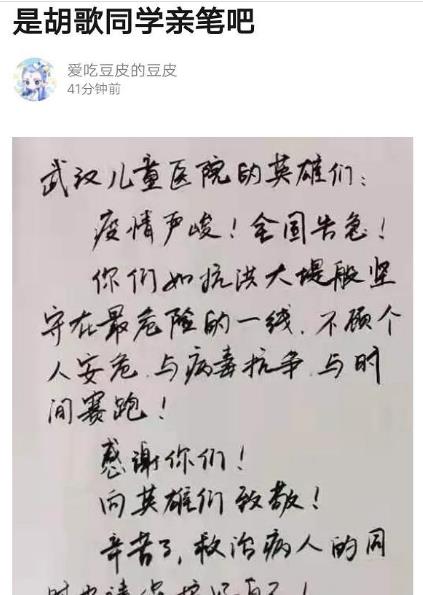 是胡歌同学亲笔吧
爱吃豆皮的豆皮
41分钟前
武汉儿童医院的英雄们：
疫情严峻！全国告急！
你们如抗洪大堤般坚
守在最危险的一线，不顾个
人安危，与病毒抗争，与时
间赛跑！
感谢你们！
向英雄们致敬！
辛苦了，救治病人的同